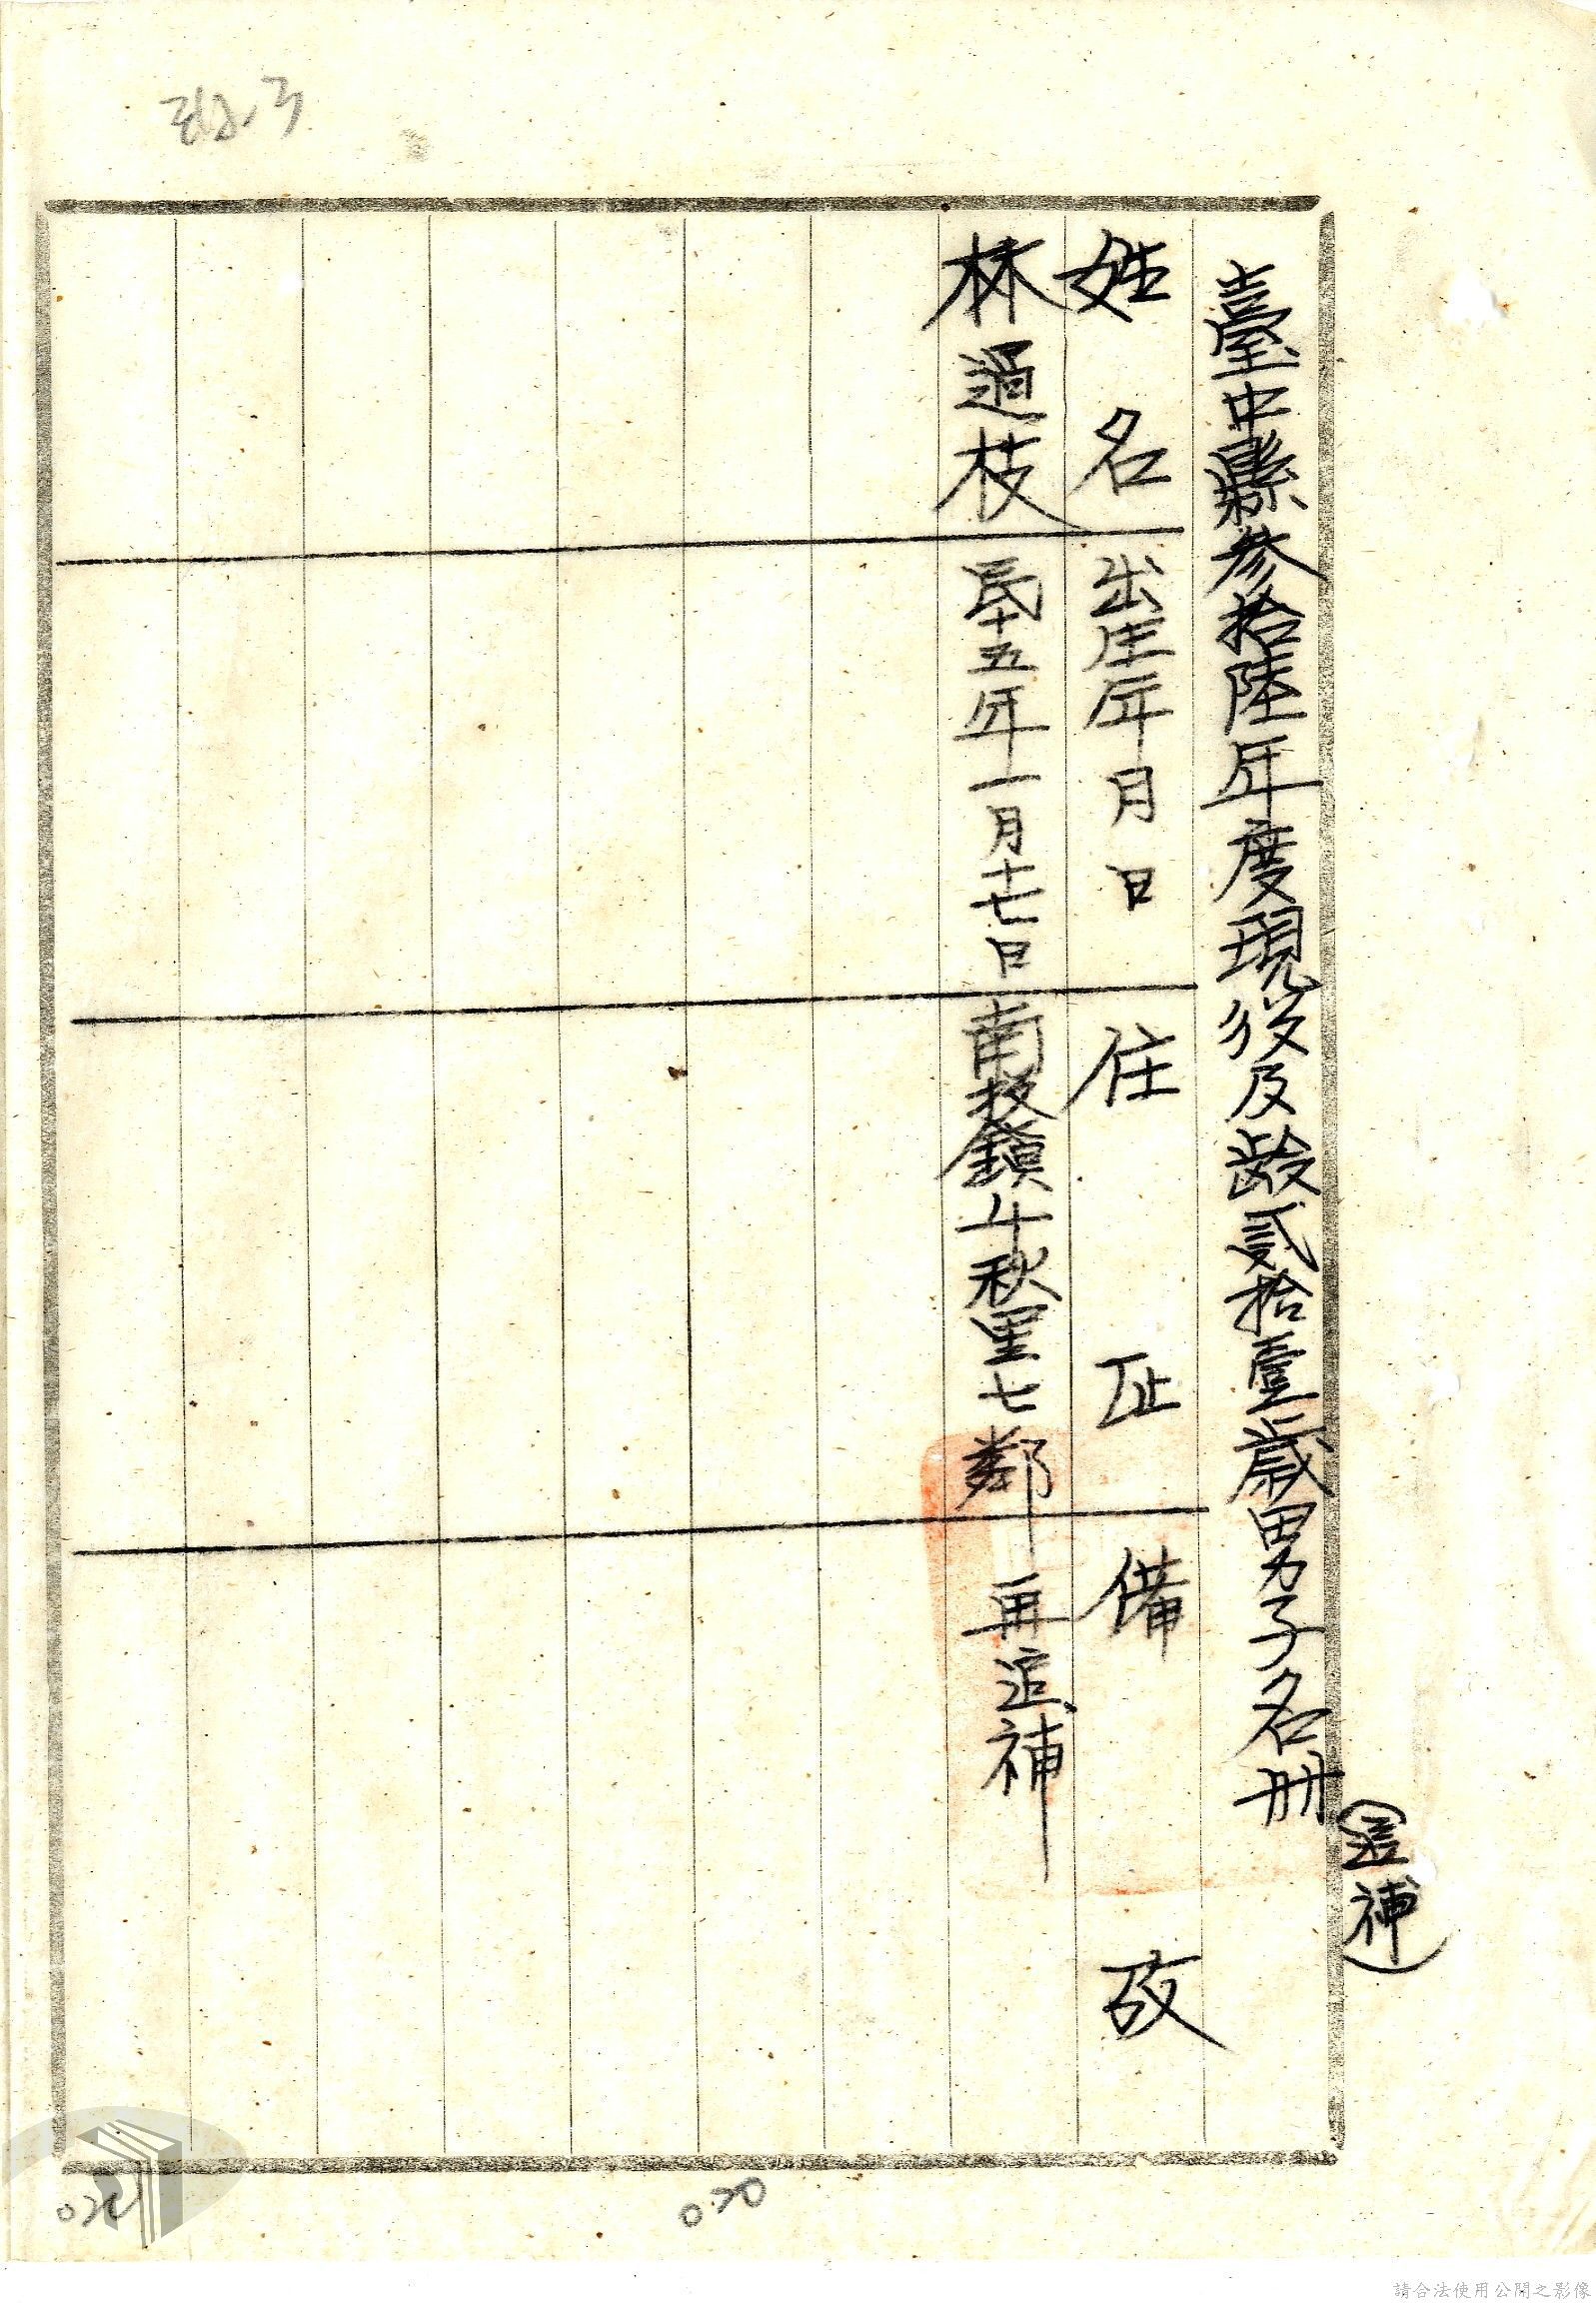 臺中縣參拾陸年度現役及齡貳拾壹歲男子名册
補
姓名 出生年月日 住址 備攷
林過枝 民國十五年一月十七日 南投鎮斗秋里七鄰 再追補
070
請合法使用公開之影像